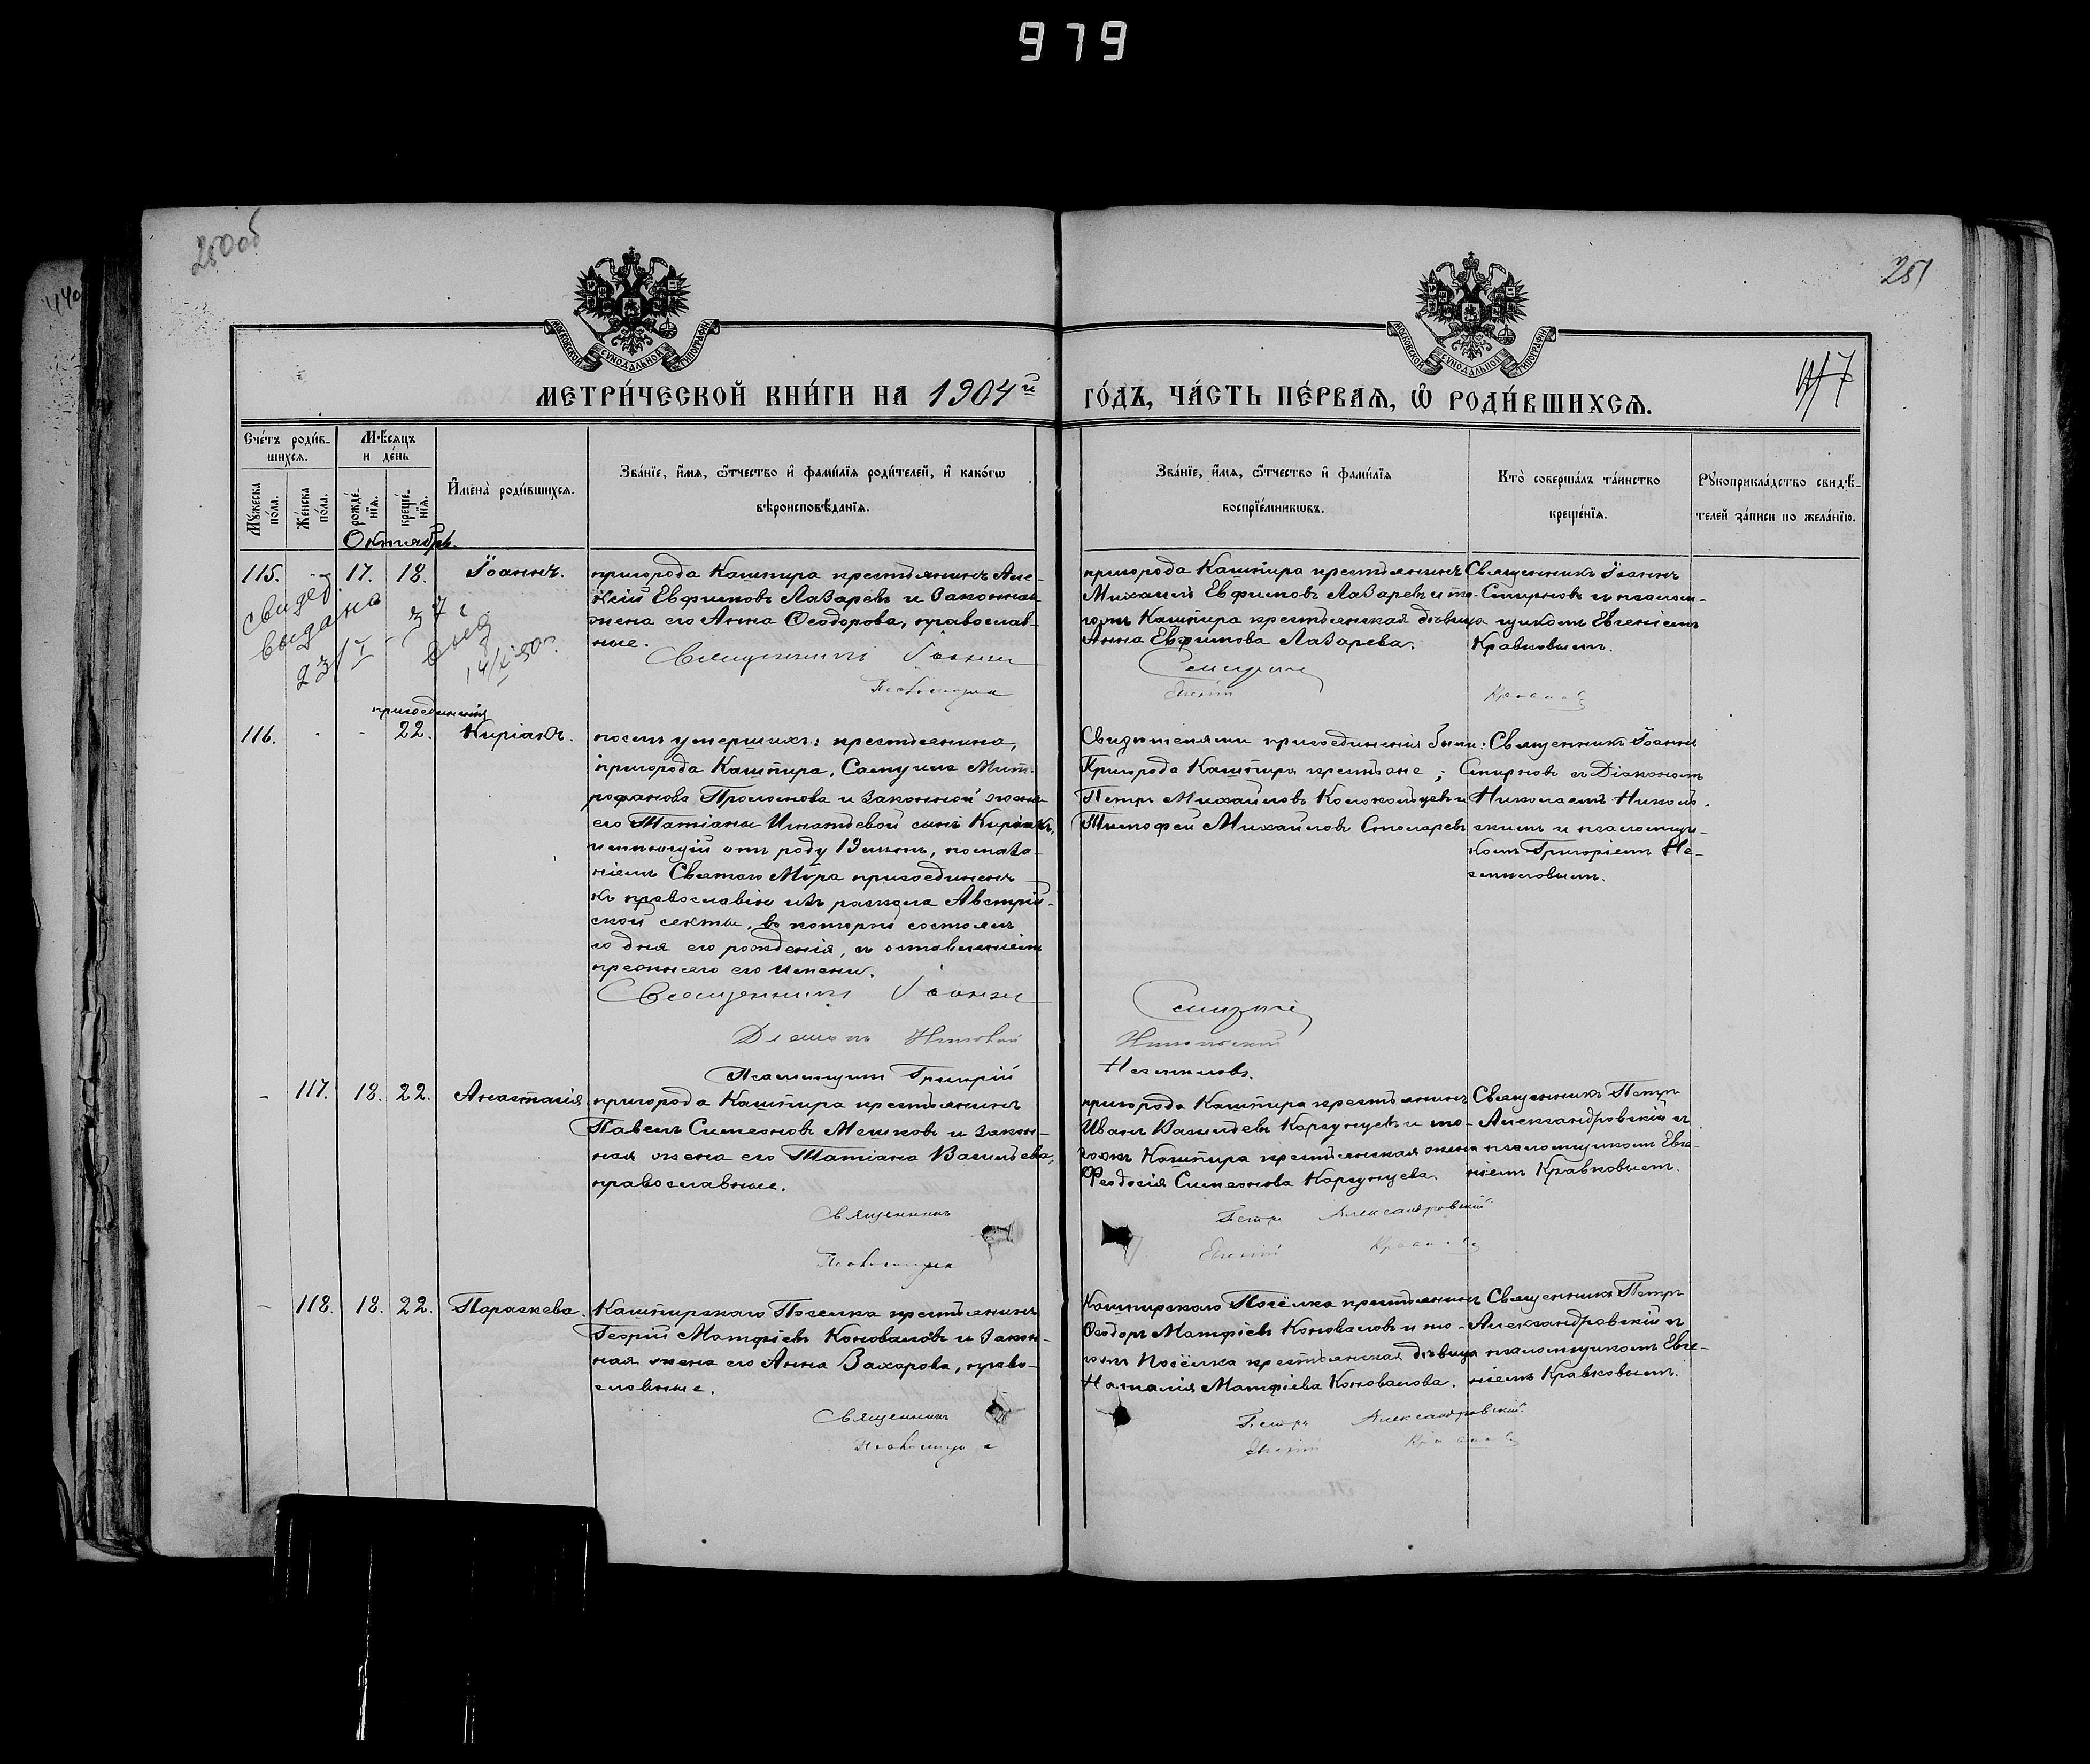 979
250об
251
МОСКОВСКОЙ СѴНОДАЛЬНОЙ ТИПОГРАФІИ
МОСКОВСКОЙ СѴНОДАЛЬНОЙ ТИПОГРАФІИ
МЕТРИ́ЧЕСКОЙ КНИ́ГИ НА 1904й ГО́ДЪ, ЧА́СТЬ ПЕ́РВАѦ, Ѡ҆ РОДИ́ВШИХСѦ.
Сче́тъ роди́в-
шихсѧ.
Мѣ́сѧцъ
и де́нь
Мꙋ́жеска
по́ла.
Же́нска
по́ла.
рожде́-
нїѧ.
креще́-
нїѧ.
И҆мена̀ роди́вшихсѧ.
Зва́нїе, и҆́мѧ, ѻ҆́тчество и҆ фами́лїѧ роди́телей, и҆ како́гѡ
вѣроисповѣ́данїѧ.
Зва́нїе, и҆́мѧ, ѻ҆́тчество и҆ фами́лїѧ
воспрїе́мникѡвъ.
Кто̀ соверша́лъ та́инство
креще́нїѧ.
Рꙋкоприкла́дство свидѣ́-
телей за́писи по жела́нїю.
Октябрь.
115. - 17. 18. Іоаннъ.
свидет
выдано
23/I - 37 г
14/X-50г.
пригорода Кашпира крестьянинъ Але-
ксій Евфимовъ Лазаревъ и законная
жена его Анна Ѳеодорова, православ-
ные.
Священникъ Іоаннъ
Псаломщикъ
пригорода Кашпира крестьянинъ
Михаилъ Евфимовъ Лазаревъ и то-
гожъ Кашпира крестьянская дѣвица
Анна Евфимова Лазарева.
Смирновъ
Евгеній Кравковъ
Священникъ Іоаннъ
Смирновъ съ псалом-
щикомъ Евгеніемъ
Кравковымъ.
116. - - присоединенія 22. Киріакъ.
послѣ умершихъ: крестьянина,
пригорода Кашпира, Самуила Мит-
рофанова Пролонова и законной жены
его Татіаны Игнатьевой сынъ Киріакъ,
имѣющій отъ роду 19 лѣтъ, помаза-
ніемъ Святаго Мѵра присоединенъ
къ православію изъ раскола Австрій-
ской секты, въ которой состоялъ
со дня его рожденія, съ оставленіемъ
прежняго его имени.
Священникъ Іоаннъ
Діаконъ Николай
Псаломщикъ Григорій
Свидѣтелями присоединенія были:
Пригорода Кашпира крестьяне;
Петръ Михайловъ Колокольцевъ и
Тимофей Михайловъ Столяревъ
Смирновъ
Никольскій
Несмѣловъ.
Священникъ Іоаннъ
Смирновъ съ Діакономъ
Николаемъ Николь-
скимъ и псаломщи-
комъ Григоріемъ Не-
смѣловымъ.
- 117. 18. 22. Анастасія
пригорода Кашпира крестьянинъ
Павелъ Симеоновъ Мешковъ и закон-
ная жена его Татіана Васильева,
православные.
Священникъ
Псаломщикъ
пригорода Кашпира крестьянинъ
Иванъ Васильевъ Каргунцевъ и то-
гожъ Кашпира крестьянская жена
Феодосія Симеонова Каргунцева.
Петръ Александровскій
Евгеній Кравковъ
Священникъ Петръ
Александровскій съ
псаломщикомъ Евге-
ніемъ Кравковымъ.
- 118. 18. 22. Параскева.
Кашпирскаго Поселка крестьянинъ
Георгій Матфіевъ Коноваловъ и закон-
ная жена его Анна Захарова, право-
славные.
Священникъ
Псаломщикъ
Кашпирскаго Посёлка крестьянинъ
Ѳеодоръ Матфіевъ Коноваловъ и то-
гожъ Посёлка крестьянская дѣвица
Наталія Матфіева Коновалова.
Петръ Александровскій.
Евгеній Кравковъ
Священникъ Петръ
Александровскій съ
псаломщикомъ Евге-
ніемъ Кравковымъ.